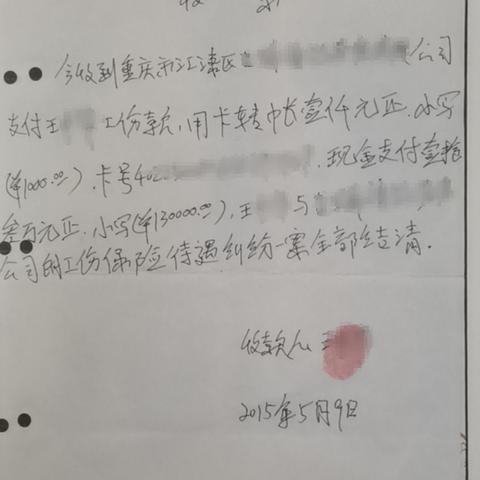 收
今收到重庆市江津区公司
支付王工伤款,用卡转帐壹仟元正.小写
(¥1000.00).卡号402.现金支付壹拾
叁万元正.小写(¥130000.00),王与
公司的工伤保险待遇纠纷一案全部结清.
收款人 王
2015年5月9日